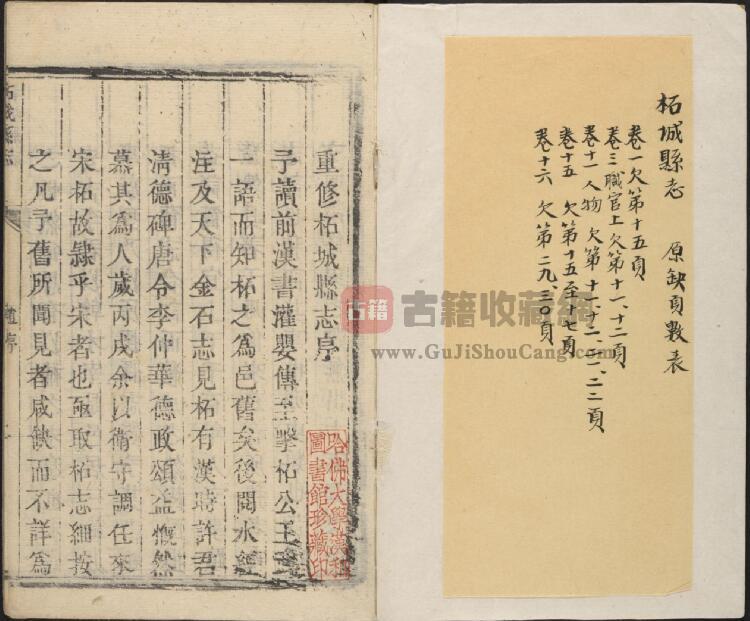 柘城縣志　原缺頁數表
卷一欠第十五頁
卷三職官上欠第十一、十二頁
卷十一人物 欠第十一、十二、二一、二二頁
卷十五 欠第十五至十七頁
卷十六 欠第二九、三〇頁
重修柘城縣志序
予讀前漢書灌嬰傳至擊柘公王武
一語而知柘之為邑舊矣後閱水經
注及天下金石志見柘有漢時許君
清德碑唐令李仲華德政頌益慨然
慕其為人歲丙戌余以衛守調任來
宋柘故隸乎宋者也亟取柘志細按
之凡予舊所聞見者咸缺而不詳為
柘城縣志
哈佛大學漢和
圖書館珍藏印
古籍
古籍收藏網
www.GuJiShouCang.com